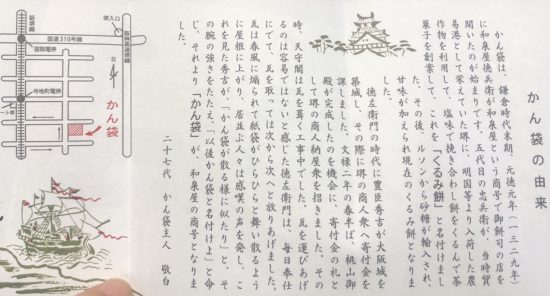 かん袋の由来
かん袋は、鎌倉時代末期、元徳元年(一三二九年)
に和泉屋徳兵衛が和泉屋という商号で御餅司の店を
開いたのが始まりです。五代目の忠兵衛が、当時貿
易港として栄えていた堺に、明国等より入荷した農
作物を利用して、塩味で挽き合わし餅をくるんで茶
菓子を創案して、これを「くるみ餅」と名付けまし
た。その後、ルソンから砂糖が輸入され、
甘味が加えられ現在のくるみ餅となりま
した。
徳左衛門の時代に豊臣秀吉が大阪城を
築城し、その際に堺の商人衆へ寄付金を
課しました。文禄二年の春半ば、桃山御
殿が完成したのを機会に、寄付金の礼と
して堺の商人納屋衆を招きました。その
時、天守閣は瓦を葺く工事中でした。瓦を運びあげ
るのは容易ではないと感じた徳左衛門は、毎日奉仕
にでて、瓦を取っては次から次へと放りあげました。
瓦は春風に煽られて紙袋がひらひらと舞い散るよう
に屋根に上がり、居並ぶ人々は感嘆の声を発し、こ
れを見た秀吉が、「かん袋が散る様に似たり」と、そ
の腕の強さをたたえ、「以後かん袋と名付けよ」と命
じ、それより「かん袋」が、和泉屋の商号となりま
した。
二十七代 かん袋主人 敬白
阪堺線
堺入口
阪神高速堺線
国道310号線
宿院電停
北
寺地町電停
かん袋
ート堺